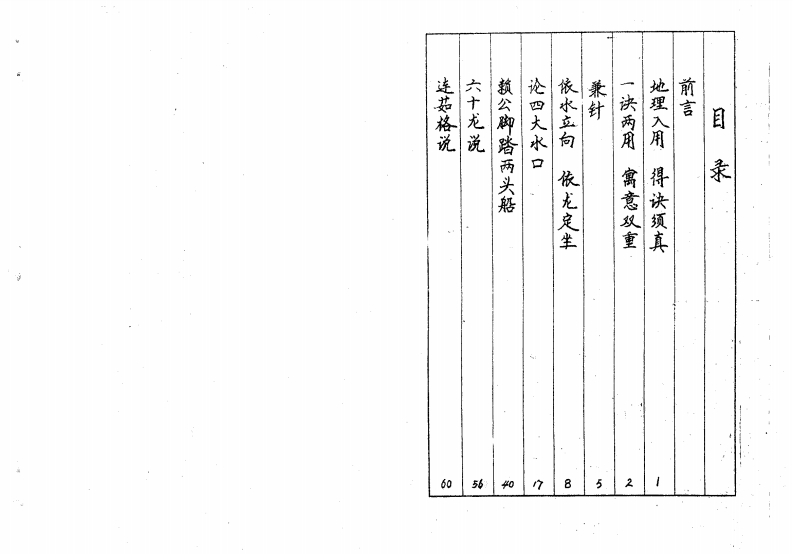 目录
前言
地理入用 得诀须真 1
一诀两用 寓意双重 2
兼针 5
依水立向 依龙定坐 8
论四大水口 17
赖公脚踏两头船 40
六十龙说 56
连茹格说 60